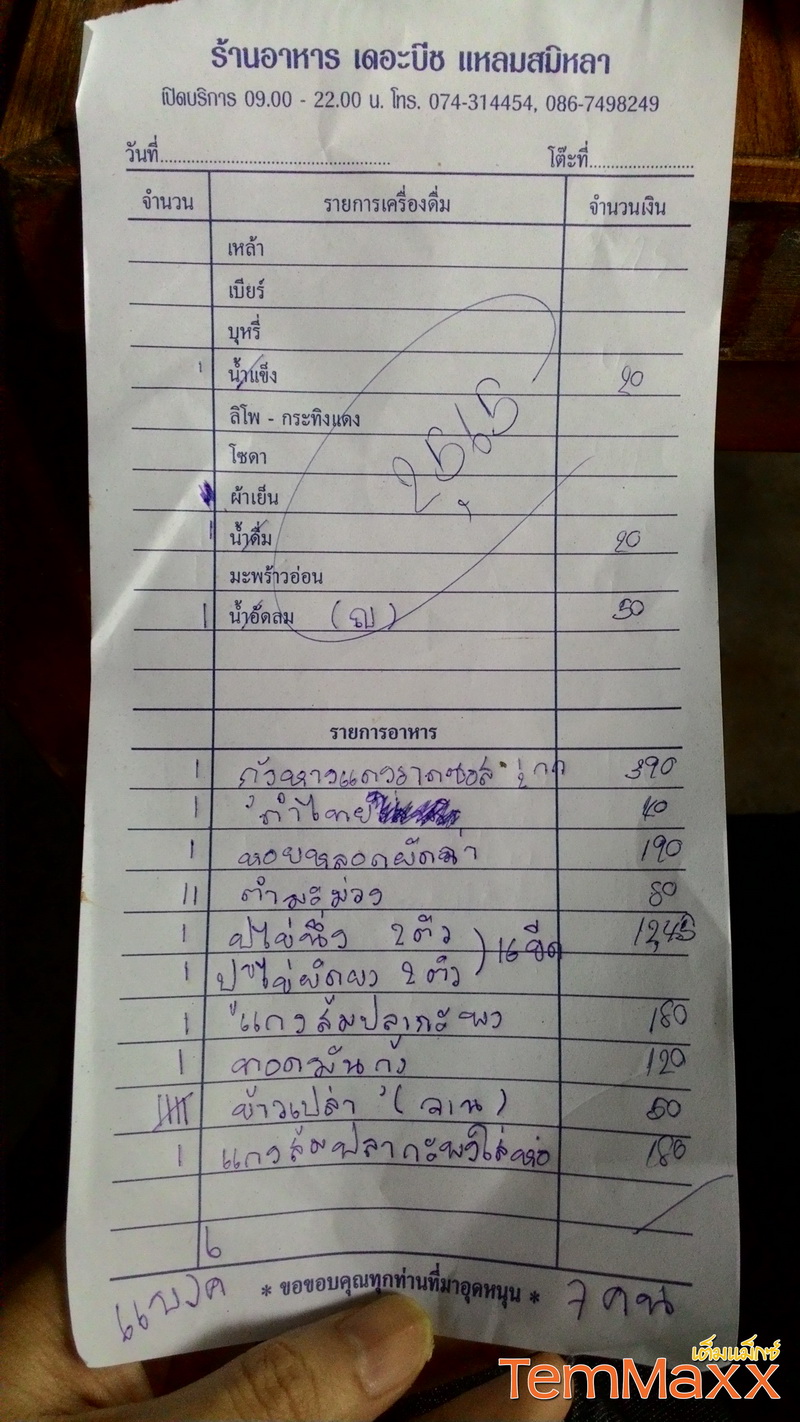 ร้านอาหาร เดอะบีช แหลมสมิหลา
เปิดบริการ 09.00 - 22.00 น. โทร. 074-314454, 086-7498249
วันที่ โต๊ะที่
จำนวน รายการเครื่องดื่ม จำนวนเงิน
เหล้า
เบียร์
บุหรี่
1 น้ำแข็ง 20
ลิโพ - กระทิงแดง
2565
โซดา
ผ้าเย็น
1 น้ำดื่ม 20
มะพร้าวอ่อน
1 น้ำอัดลม (ญ) 50
รายการอาหาร
1 390
1 ตำไทย 40
1 หอยหลอดผัดฉ่า 190
11 ตำมะม่วง 80
1 ปูไข่นึ่ง 2 ตัว ) 16 ขีด 1,245
1 ปูไข่ผัดผง 2 ตัว
1 แกงส้มปลากะพง 180
1 ทอดมันกุ้ง 120
ข้าวเปล่า (จาน) 50
1 แกงส้มปลากะพงใส่ห่อ 180
* ขอขอบคุณทุกท่านที่มาอุดหนุน * 7 คน
เต็มแม็กซ์
TemMaxx